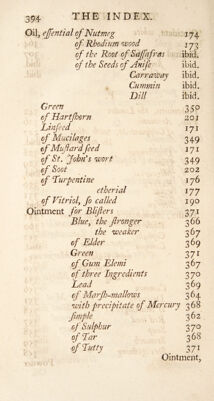 394 THE INDEX.
Oil, essential of Nutmeg 174
of Rhodium wood 173
of the Root of Sassafras ibid.
of the Seeds of Anise ibid.
Carraway ibid.
Cummin ibid.
Dill ibid.
Green 350
of Hartshorn 201
Linseed 171
of Mucilages 349
of Mustard seed 171
of St. John's wort 349
of Soot 202
of Turpentine 176
etherial 177
of Vitriol, so called 190
Ointment for Blisters 371
Blue, the stronger 366
the weaker 367
of Elder 369
Green 371
of Gum Elemi 367
of three Ingredients 370
Lead 369
of Marsh-mallows 364
with precipitate of Mercury 368
simple 362
of Sulphur 370
of Tar 368
of Tutty 371
Ointment,